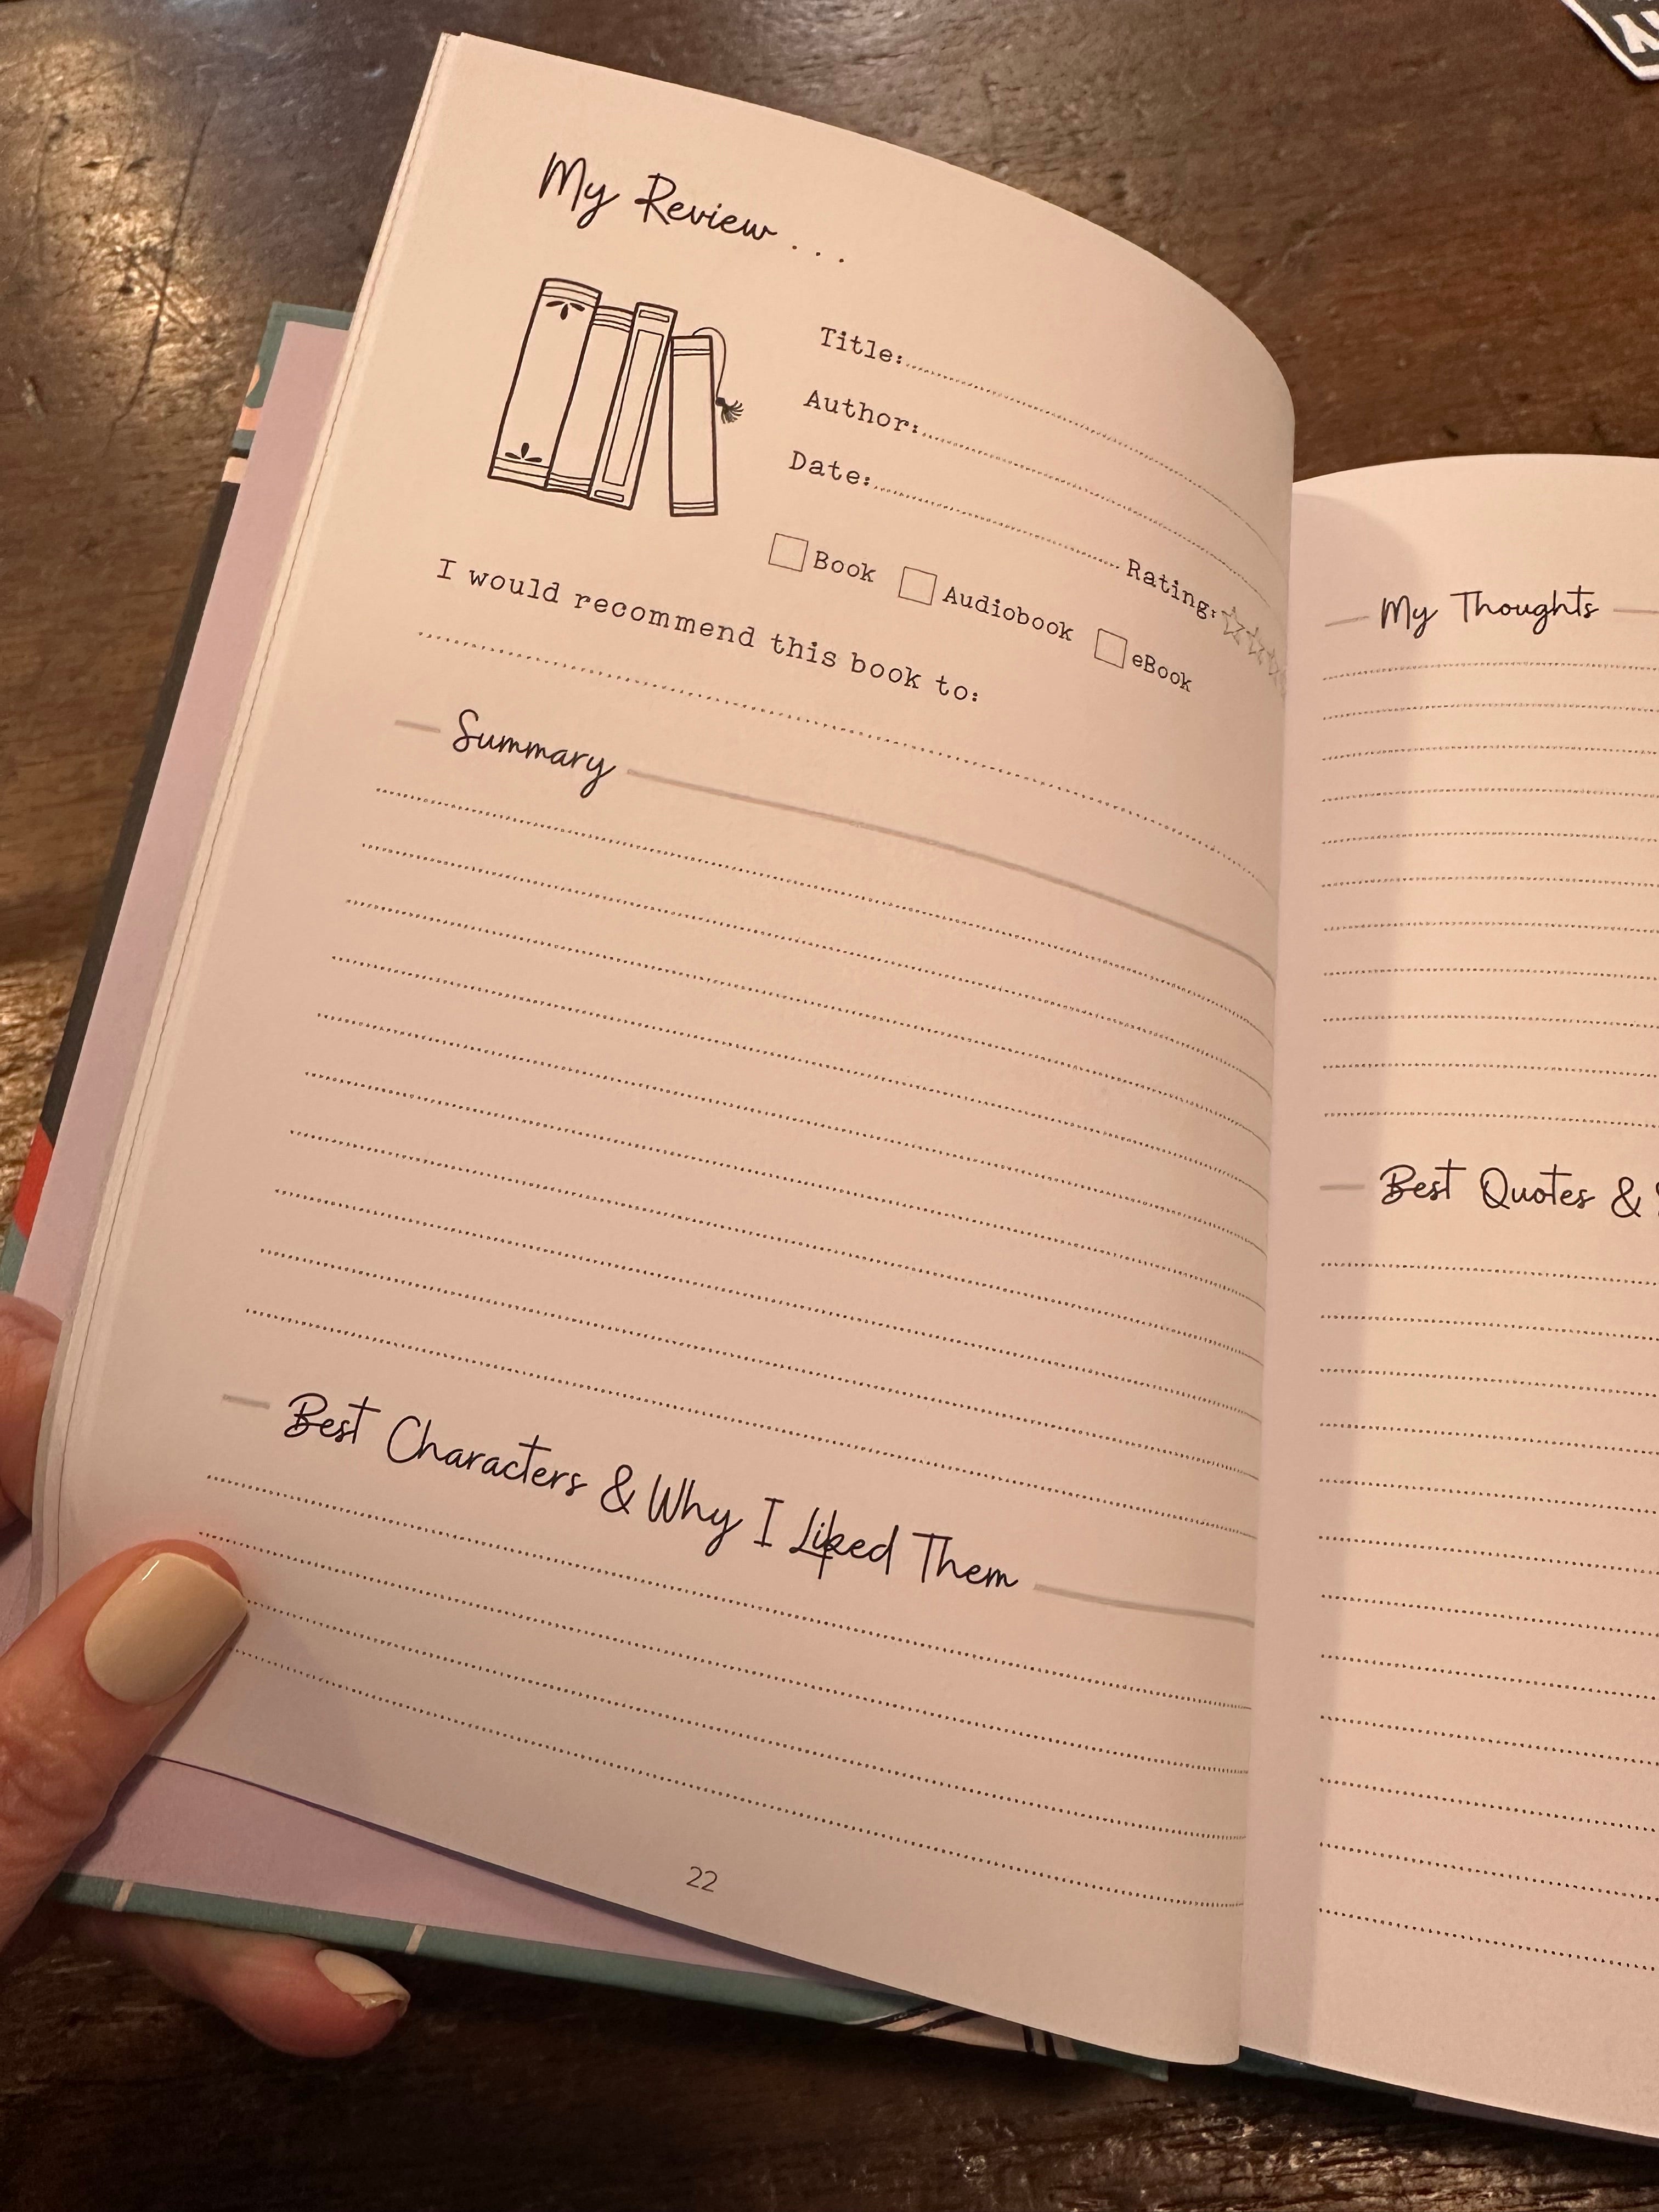 My Review . . .
Title:
Author:
Date:
Rating:
Book
Audiobook
eBook
I would recommend this book to:
Summary
Best Characters & Why I Liked Them
22
My Thoughts
Best Quotes &